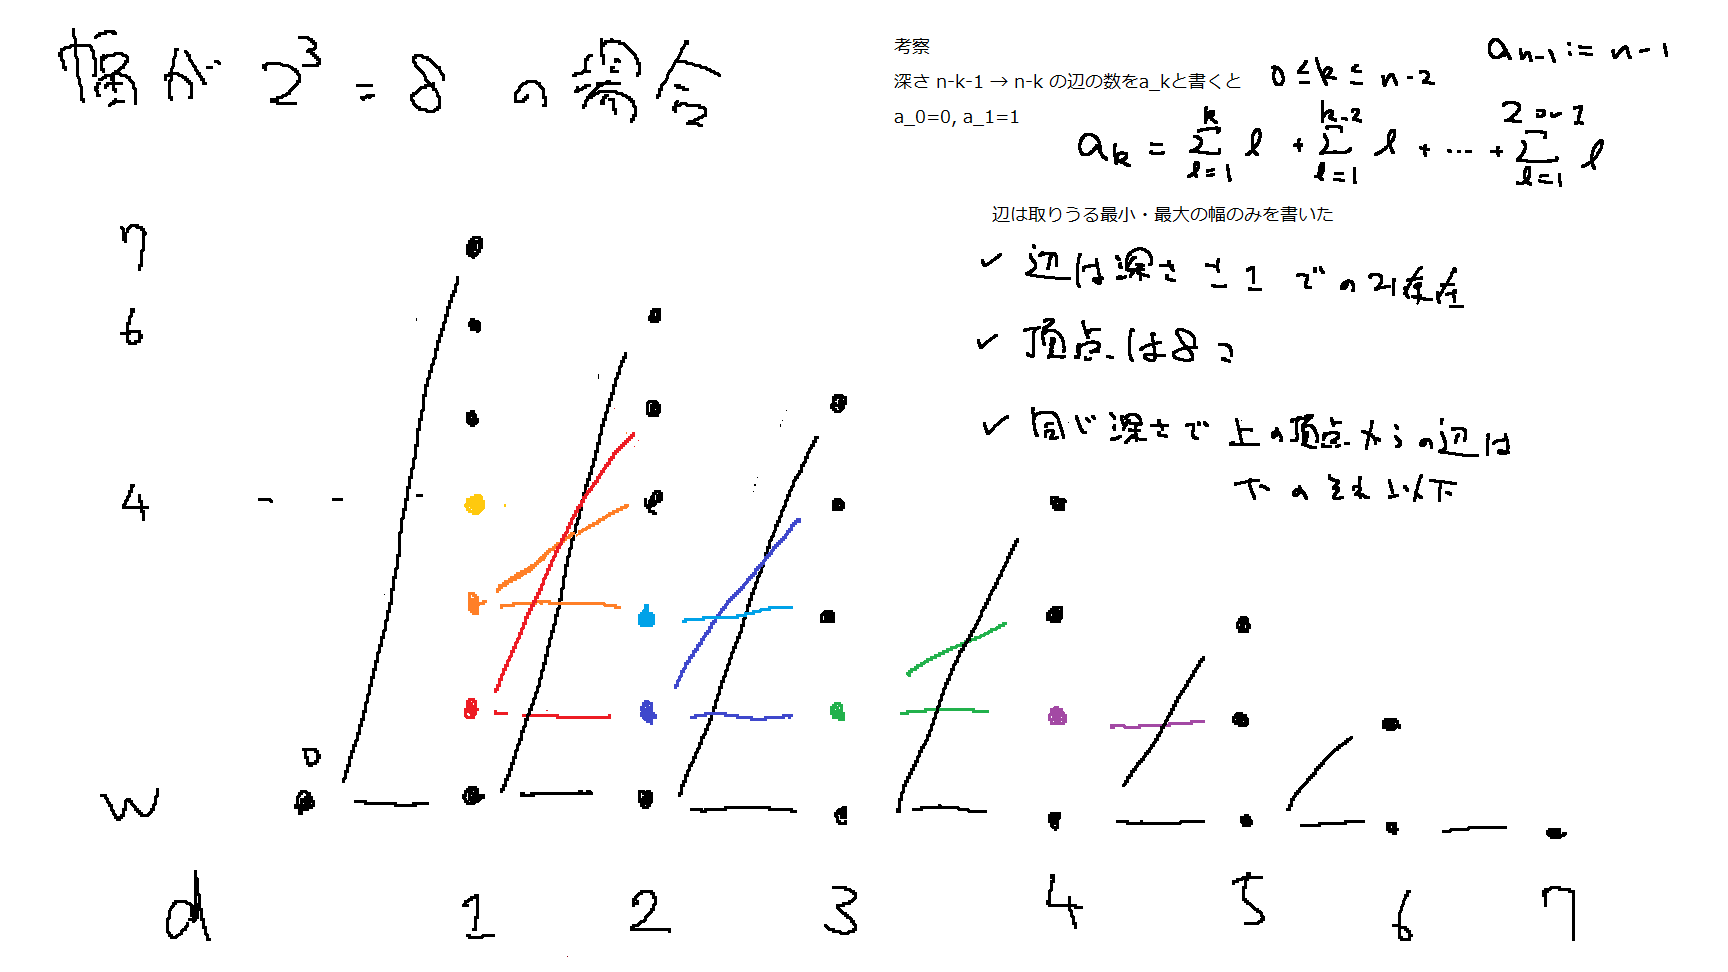 幅が 2^3 = 8 の場合
考察
深さ n-k-1 → n-k の辺の数をa_kと書くと 0 ≤ k ≤ n-2
a_{n-1} := n-1
a_0=0, a_1=1
a_k = Σ_{l=1}^{k} l + Σ_{l=1}^{k-2} l + … + Σ_{l=1}^{2 or 1} l
辺は取りうる最小・最大の幅のみを書いた
✓ 辺は深さ 1 でのみ存在
✓ 頂点は8コ
✓ 同じ深さで 上の頂点からの辺は
下のそれ以下
7
6
4
0
w
d 1 2 3 4 5 6 7